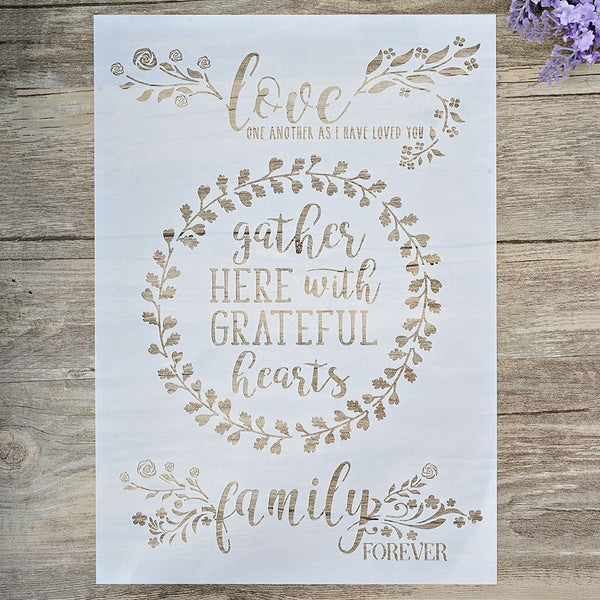 love
ONE ANOTHER AS I HAVE LOVED YOU
gather
HERE with
GRATEFUL
hearts
family
FOREVER